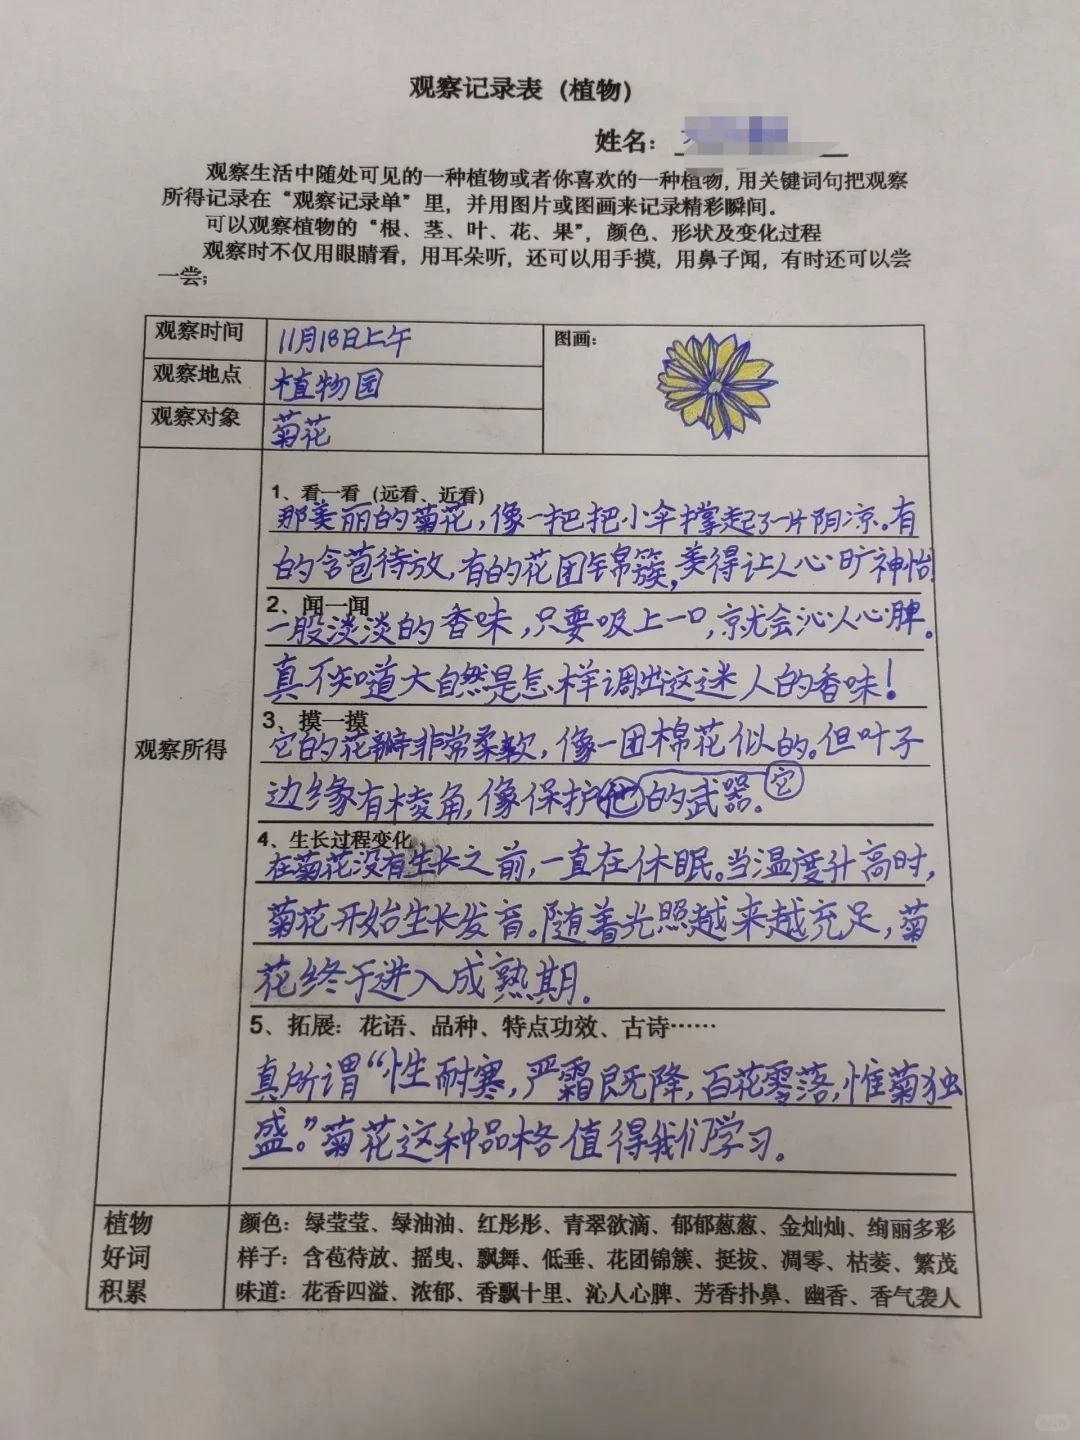 观察记录表（植物）
姓名：
观察生活中随处可见的一种植物或者你喜欢的一种植物，用关键词句把观察
所得记录在“观察记录单”里，并用图片或图画来记录精彩瞬间．
可以观察植物的“根、茎、叶、花、果”，颜色、形状及变化过程
观察时不仅用眼睛看，用耳朵听，还可以用手摸，用鼻子闻，有时还可以尝
一尝；
观察时间 11月18日上午 图画：
观察地点 植物园
观察对象 菊花
观察所得
1、看一看（远看、近看）
那美丽的菊花，像一把把小伞撑起了一片阴凉。有
的含苞待放，有的花团锦簇，美得让人心旷神怡
2、闻一闻
一股淡淡的香味，只要吸上一口，就会沁人心脾。
真不知道大自然是怎样调出这迷人的香味！
3、摸一摸
它的花瓣非常柔软，像一团棉花似的。但叶子
边缘有棱角，像保护它的武器。
4、生长过程变化
在菊花没有生长之前，一直在休眠。当温度升高时，
菊花开始生长发育。随着光照越来越充足，菊
花终于进入成熟期。
5、拓展：花语、品种、特点功效、古诗……
真所谓“性耐寒，严霜既降，百花零落，惟菊独
盛。”菊花这种品格值得我们学习。
植物
好词
积累
颜色：绿莹莹、绿油油、红彤彤、青翠欲滴、郁郁葱葱、金灿灿、绚丽多彩
样子：含苞待放、摇曳、飘舞、低垂、花团锦簇、挺拔、凋零、枯萎、繁茂
味道：花香四溢、浓郁、香飘十里、沁人心脾、芳香扑鼻、幽香、香气袭人